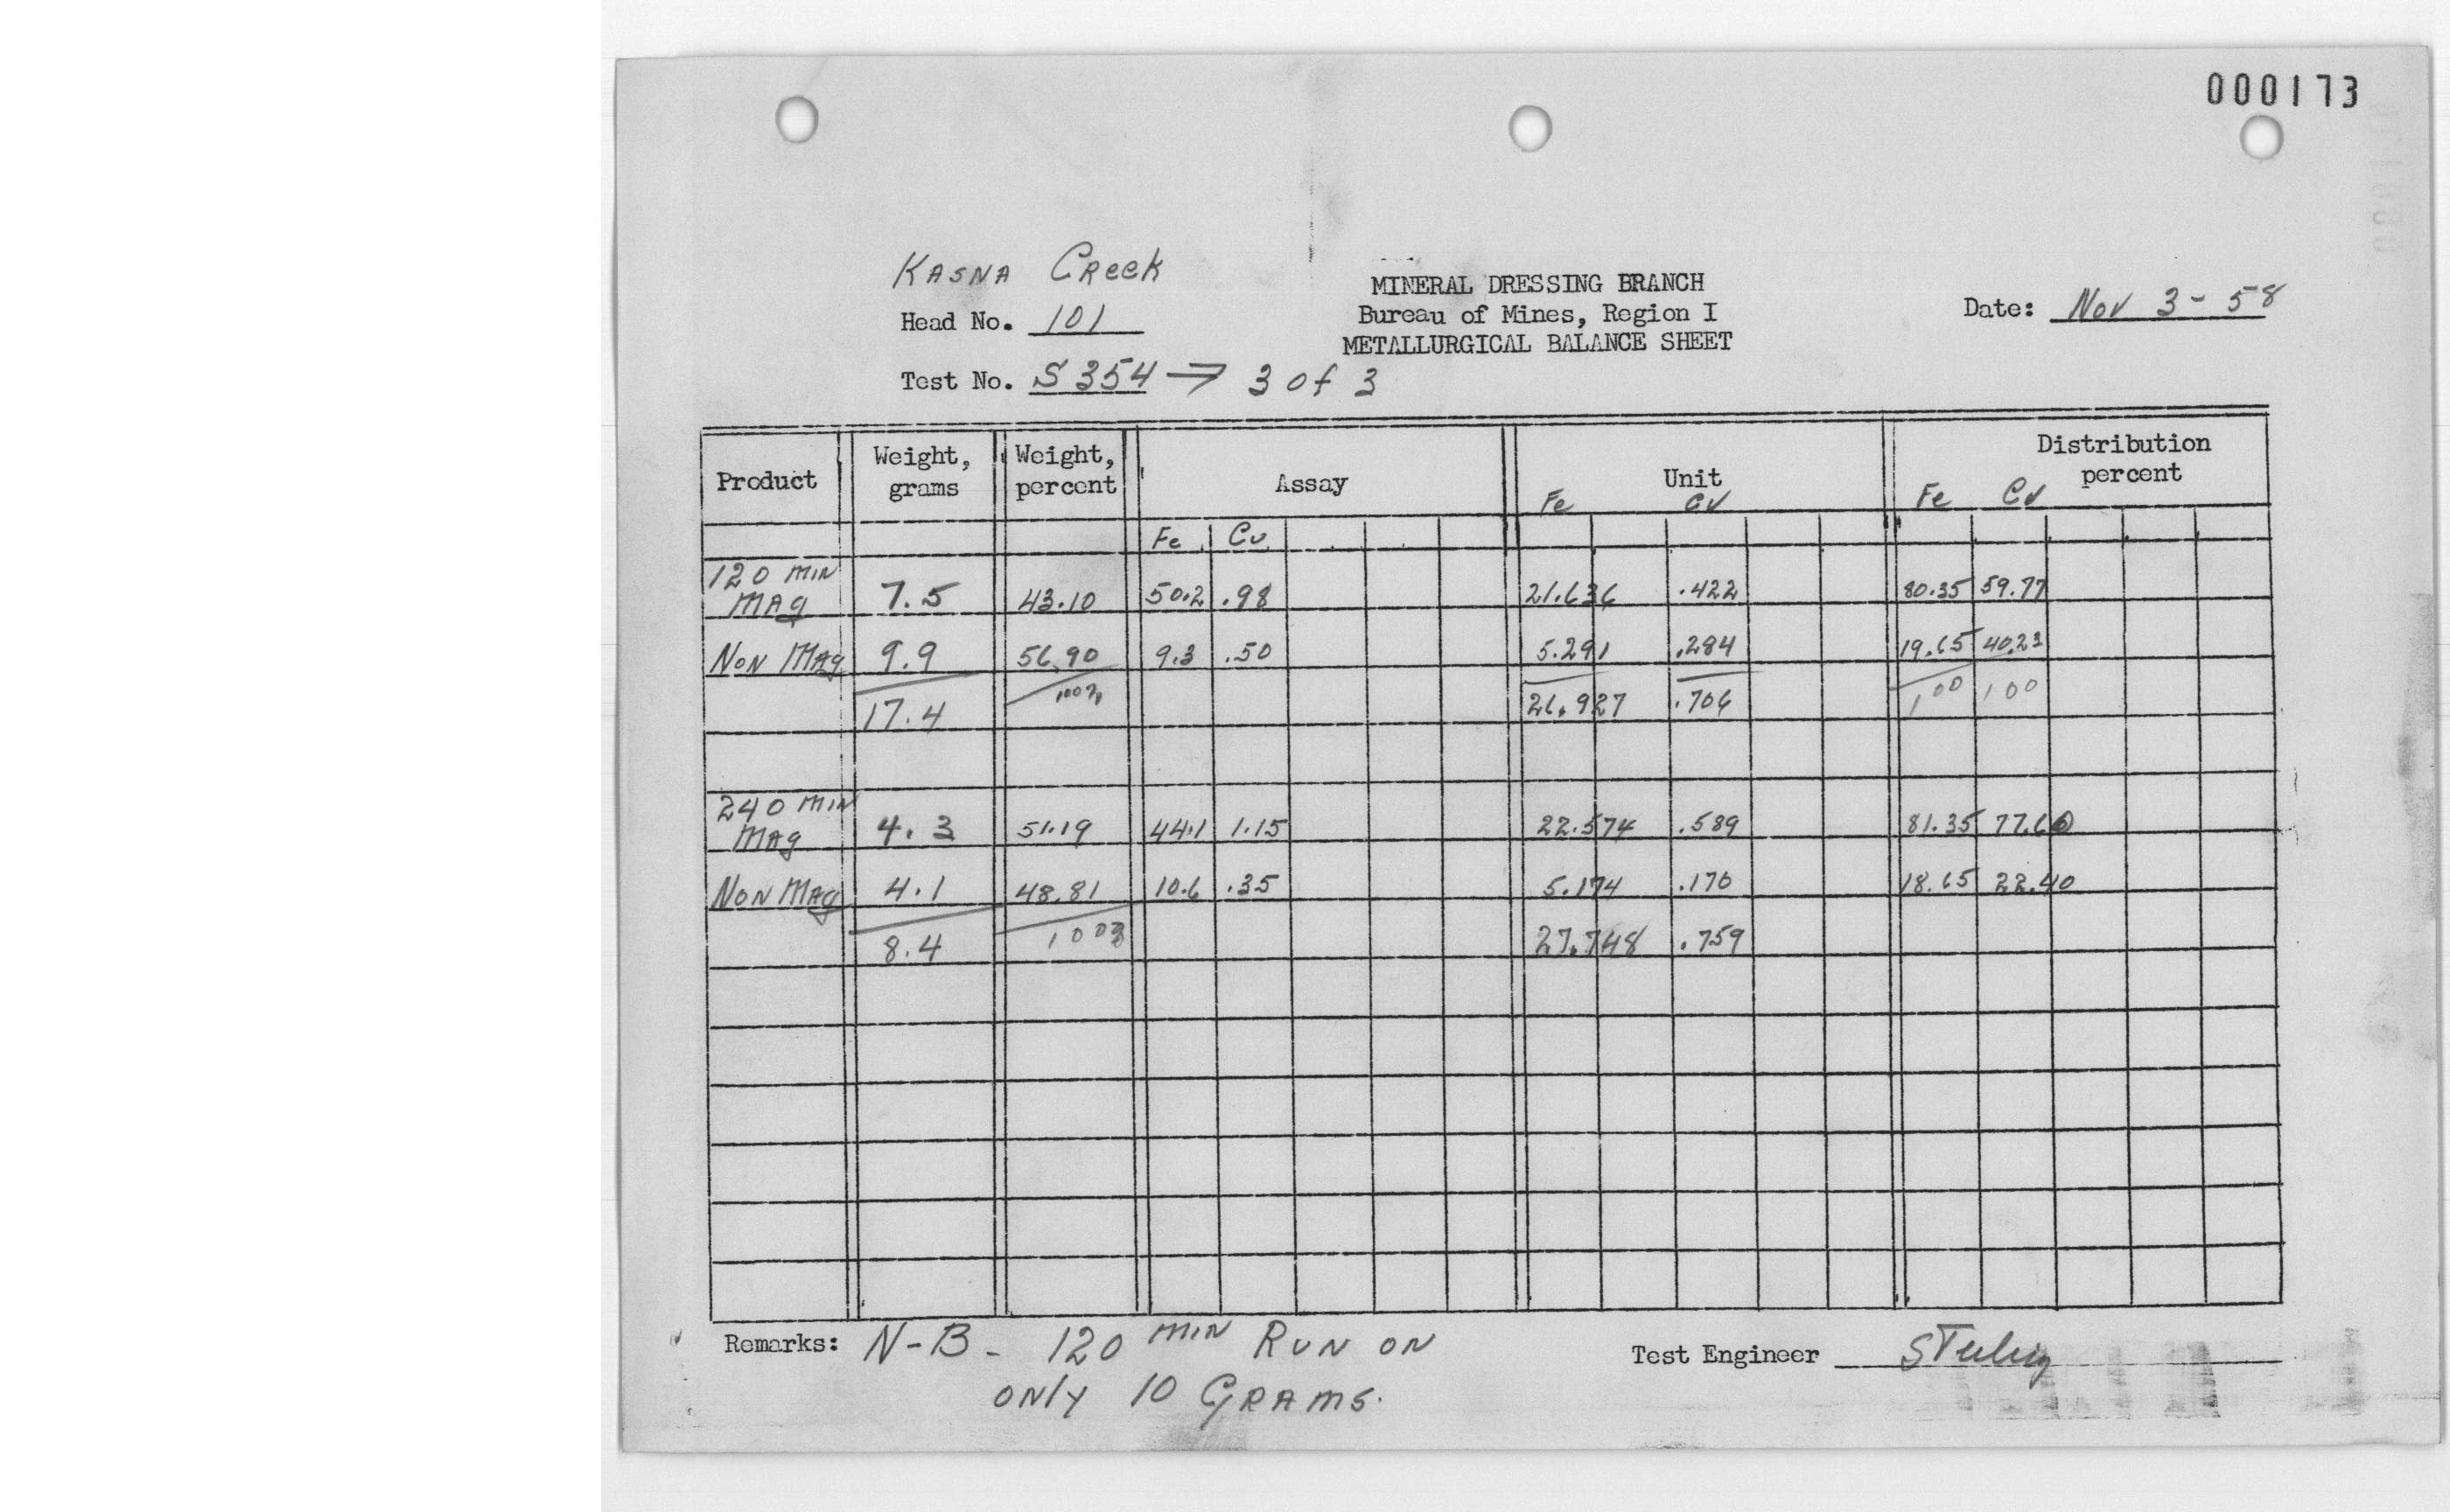 000173
KASNA CReek
Head No. 101
Test No. S354 → 3 of 3
MINERAL DRESSING BRANCH
Bureau of Mines, Region I
METALLURGICAL BALANCE SHEET
Date: Nov 3-58
Product Weight, grams Weight, percent Assay Unit Distribution percent
Fe Cu Fe Cu
Fe Cu
120 MIN
MAg 7.5 43.10 50.2 .98 21.636 .422 80.35 59.77
NON MAg 9.9 56.90 9.3 .50 5.291 .284 19.65 40.23
17.4 100% 26.927 .706 100 100
240 MIN
MAg 4.3 51.19 44.1 1.15 22.574 .589 81.35 77.60
NON MAg 4.1 48.81 10.6 .35 5.174 .170 18.65 22.40
8.4 100% 27.748 .759
Remarks: N-B- 120 MIN RUN ON
ONLY 10 GRAMS.
Test Engineer